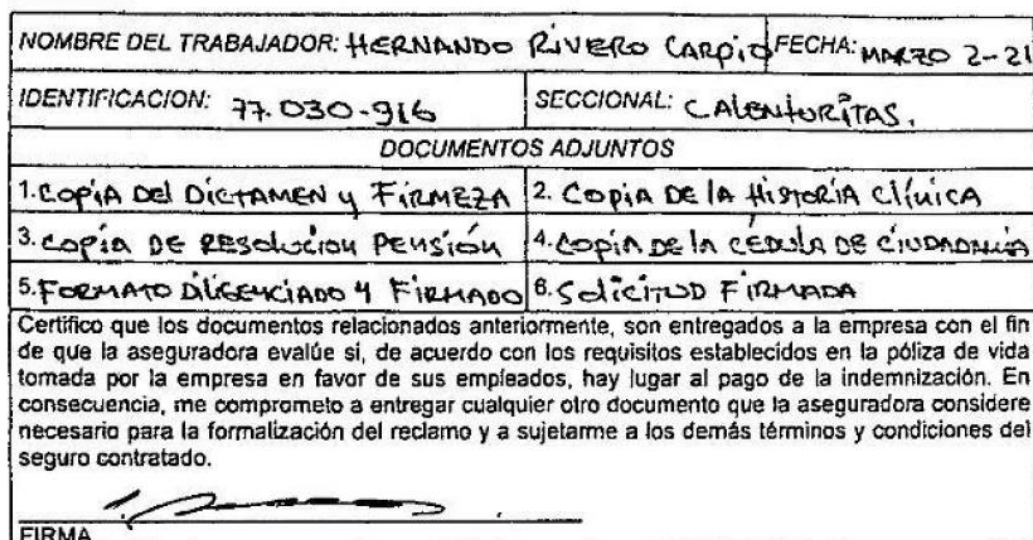 NOMBRE DEL TRABAJADOR: HERNANDO RIVERO CARPIO FECHA: MARZO 2-21
IDENTIFICACION: 77.030-916 SECCIONAL: CALENTURITAS.
DOCUMENTOS ADJUNTOS
1. COPIA DEL DICTAMEN Y FIRMEZA 2. COPIA DE LA HISTORIA CLÍNICA
3. COPIA DE RESOLUCION PENSIÓN 4. COPIA DE LA CÉDULA DE CIUDADANIA
5. FORMATO DILIGENCIADO Y FIRMADO 6. SOLICITUD FIRMADA
Certifico que los documentos relacionados anteriormente, son entregados a la empresa con el fin
de que la aseguradora evalúe si, de acuerdo con los requisitos establecidos en la póliza de vida
tomada por la empresa en favor de sus empleados, hay lugar al pago de la indemnización. En
consecuencia, me comprometo a entregar cualquier otro documento que la aseguradora considere
necesario para la formalización del reclamo y a sujetarme a los demás términos y condiciones del
seguro contratado.
FIRMA